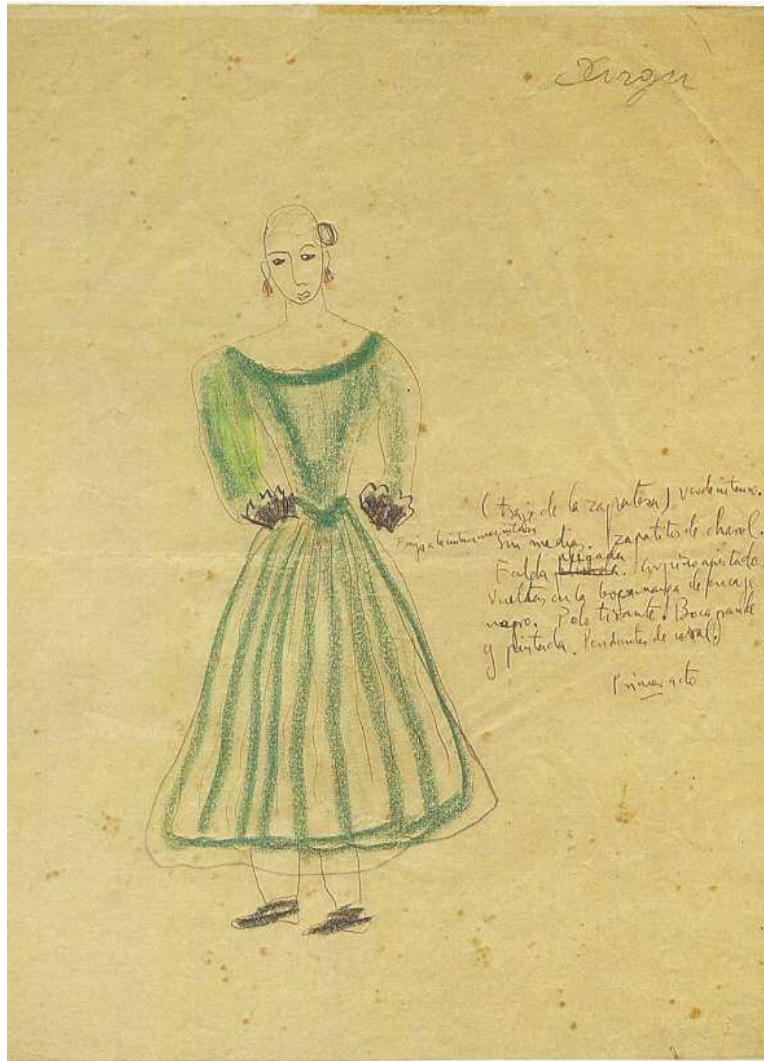 Xirgu
(traje de la zapatera) verde intenso.
Sin medias. Zapatitos de charol.
Falda plegada. Corpiño ajustado.
Vueltas en la bocamanga de encaje
negro. Pelo tirante. Boca grande
y pintada. Pendientes de coral.
Primer acto